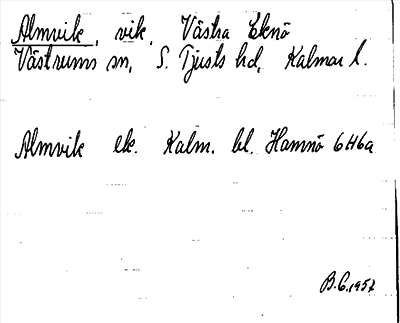 Almvik, vik, Västra Eknö
Västrums sn, S. Tjusts hd, Kalmar l.
Almvik ek. Kalm. bl. Hamnö 6H6a
B.G. 1957